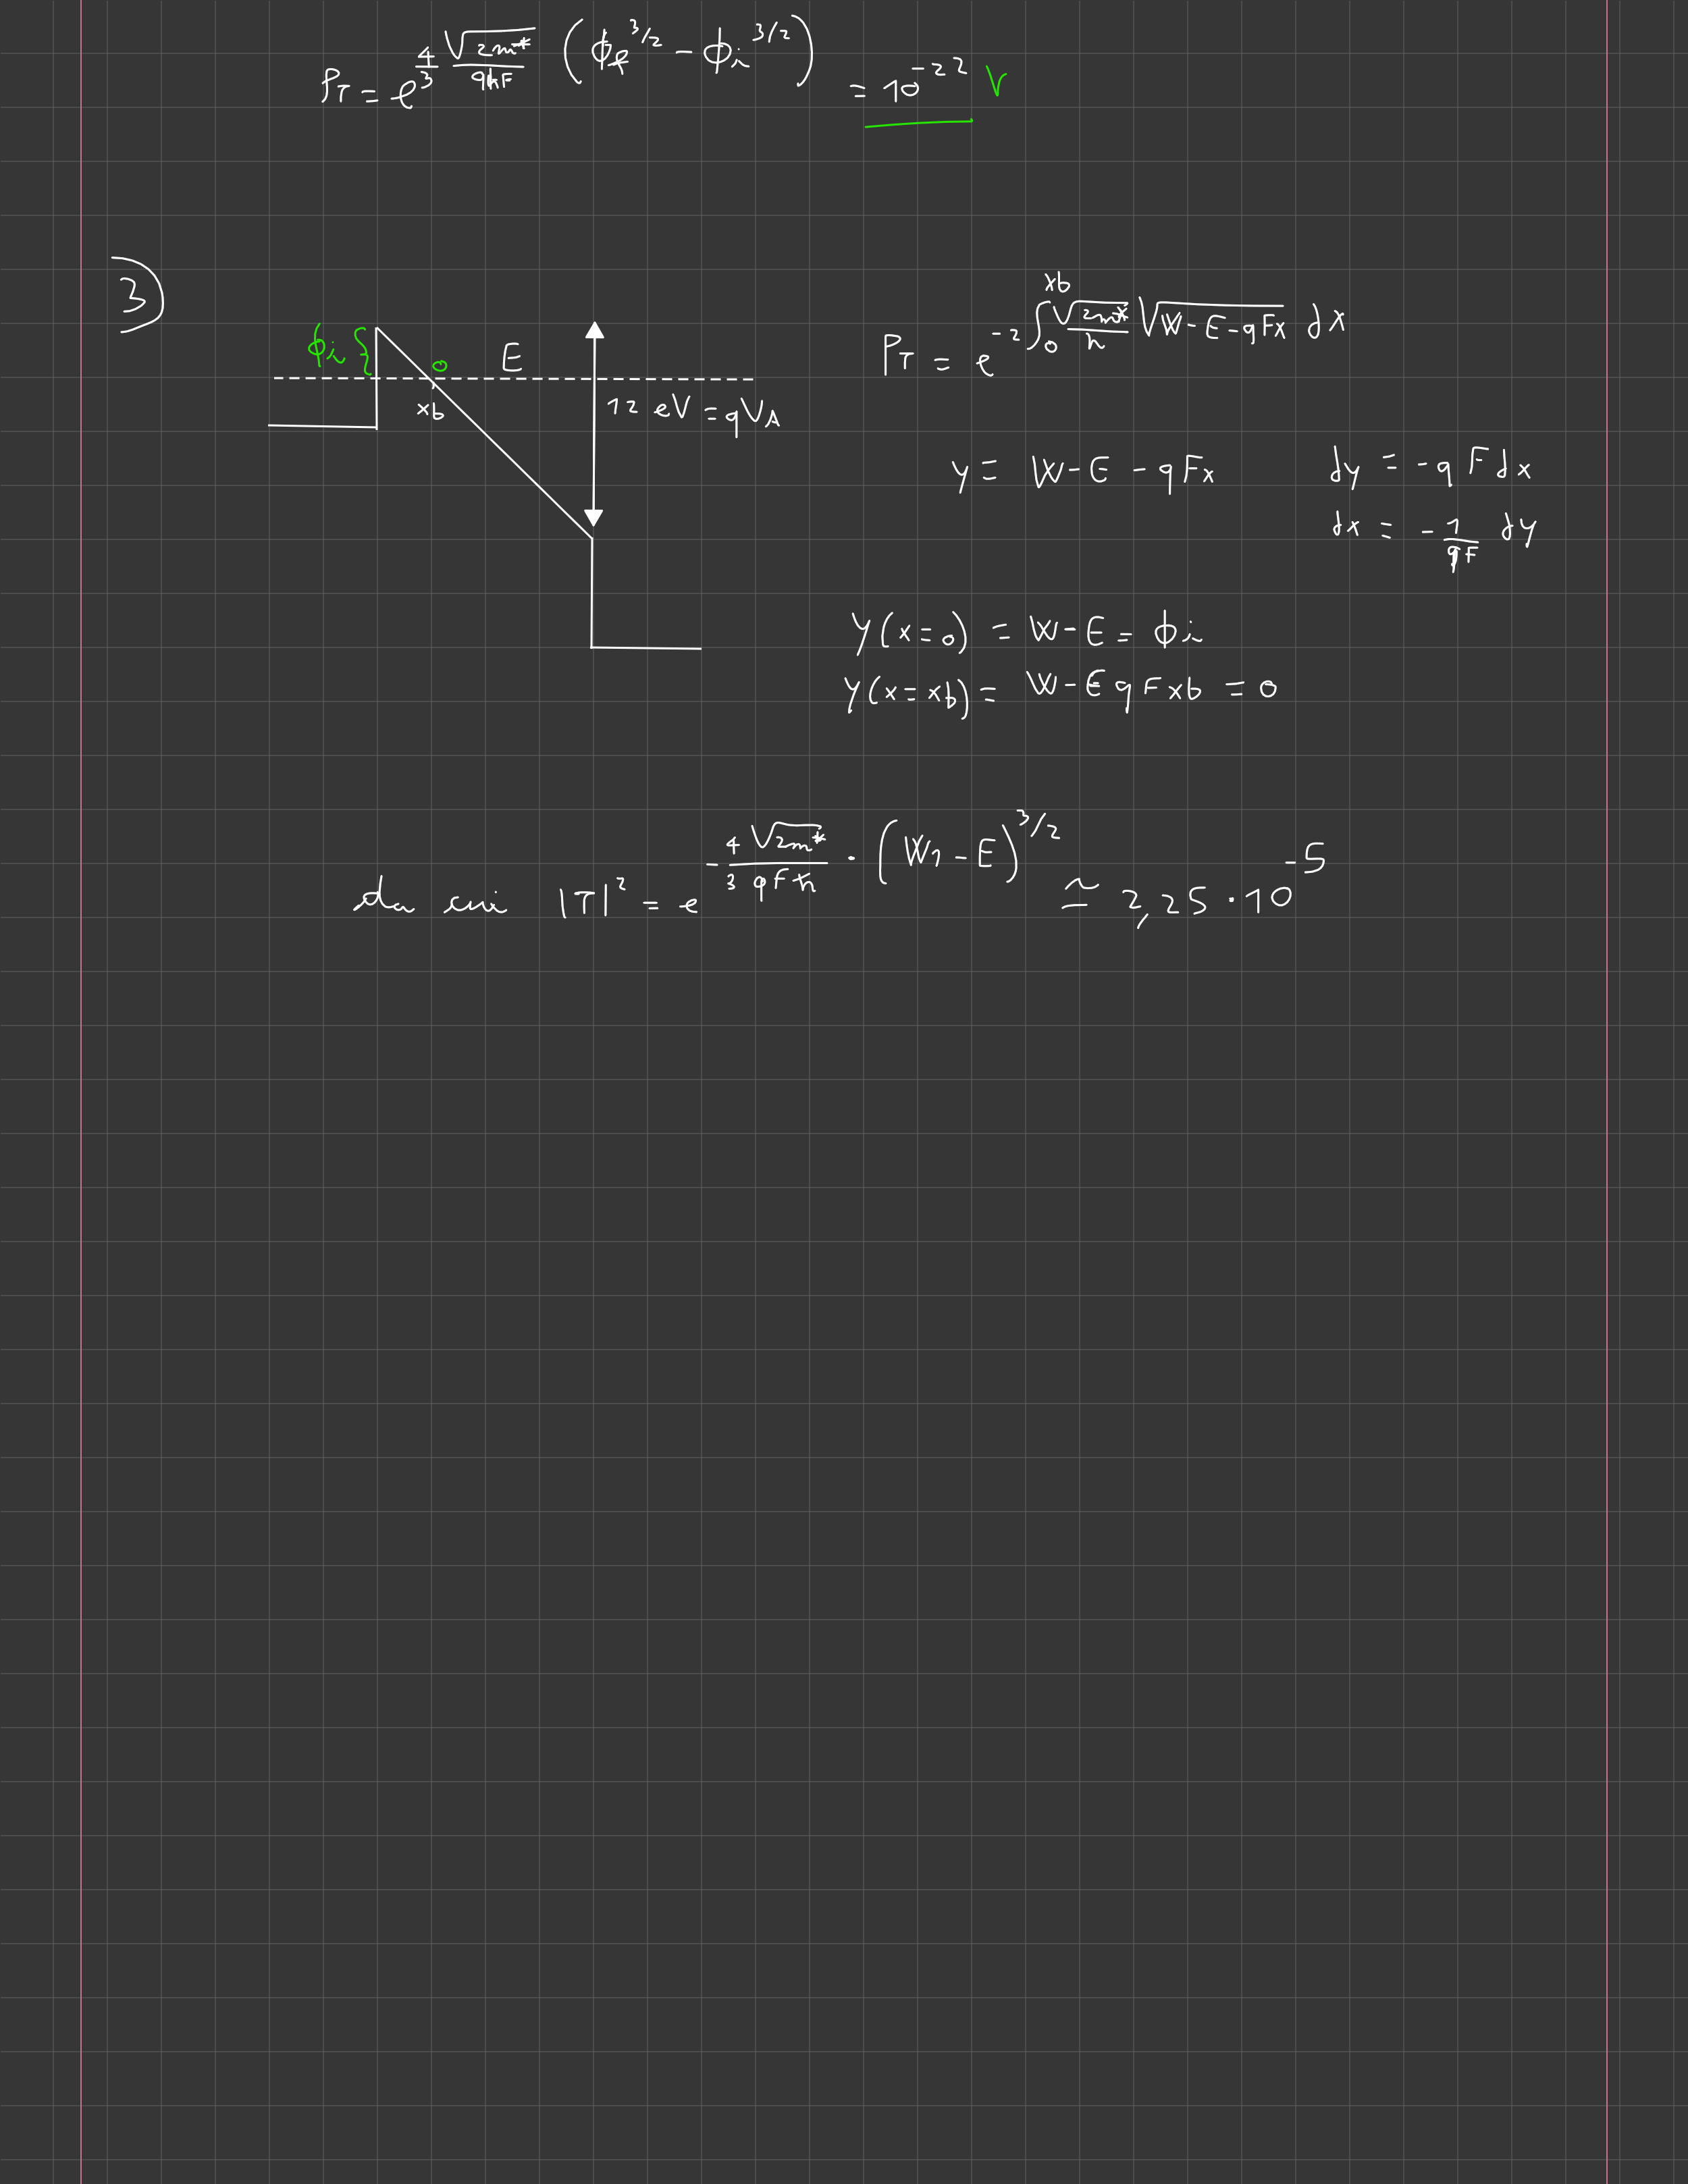 P_T = e^{\frac{4}{3} \frac{\sqrt{2m^*}}{qħF} (ϕ_f^{3/2} - ϕ_i^{3/2})} = 10^{-22} V
3)
ϕ_i {
0
E
xb
12 eV = qV_A
P_T = e^{-2 \int_0^{xb} \frac{\sqrt{2m^*}}{ħ} \sqrt{W-E-qFx} dx}
y = W-E-qFx
dy = -qFdx
dx = -\frac{1}{qF} dy
y(x=0) = W-E = ϕ_i
y(x=xb) = W-E qFxb = 0
da cui |T|^2 = e^{-\frac{4}{3} \frac{\sqrt{2m^*}}{qFħ} · (W_1-E)^{3/2}} ≃ 2,25·10^{-5}